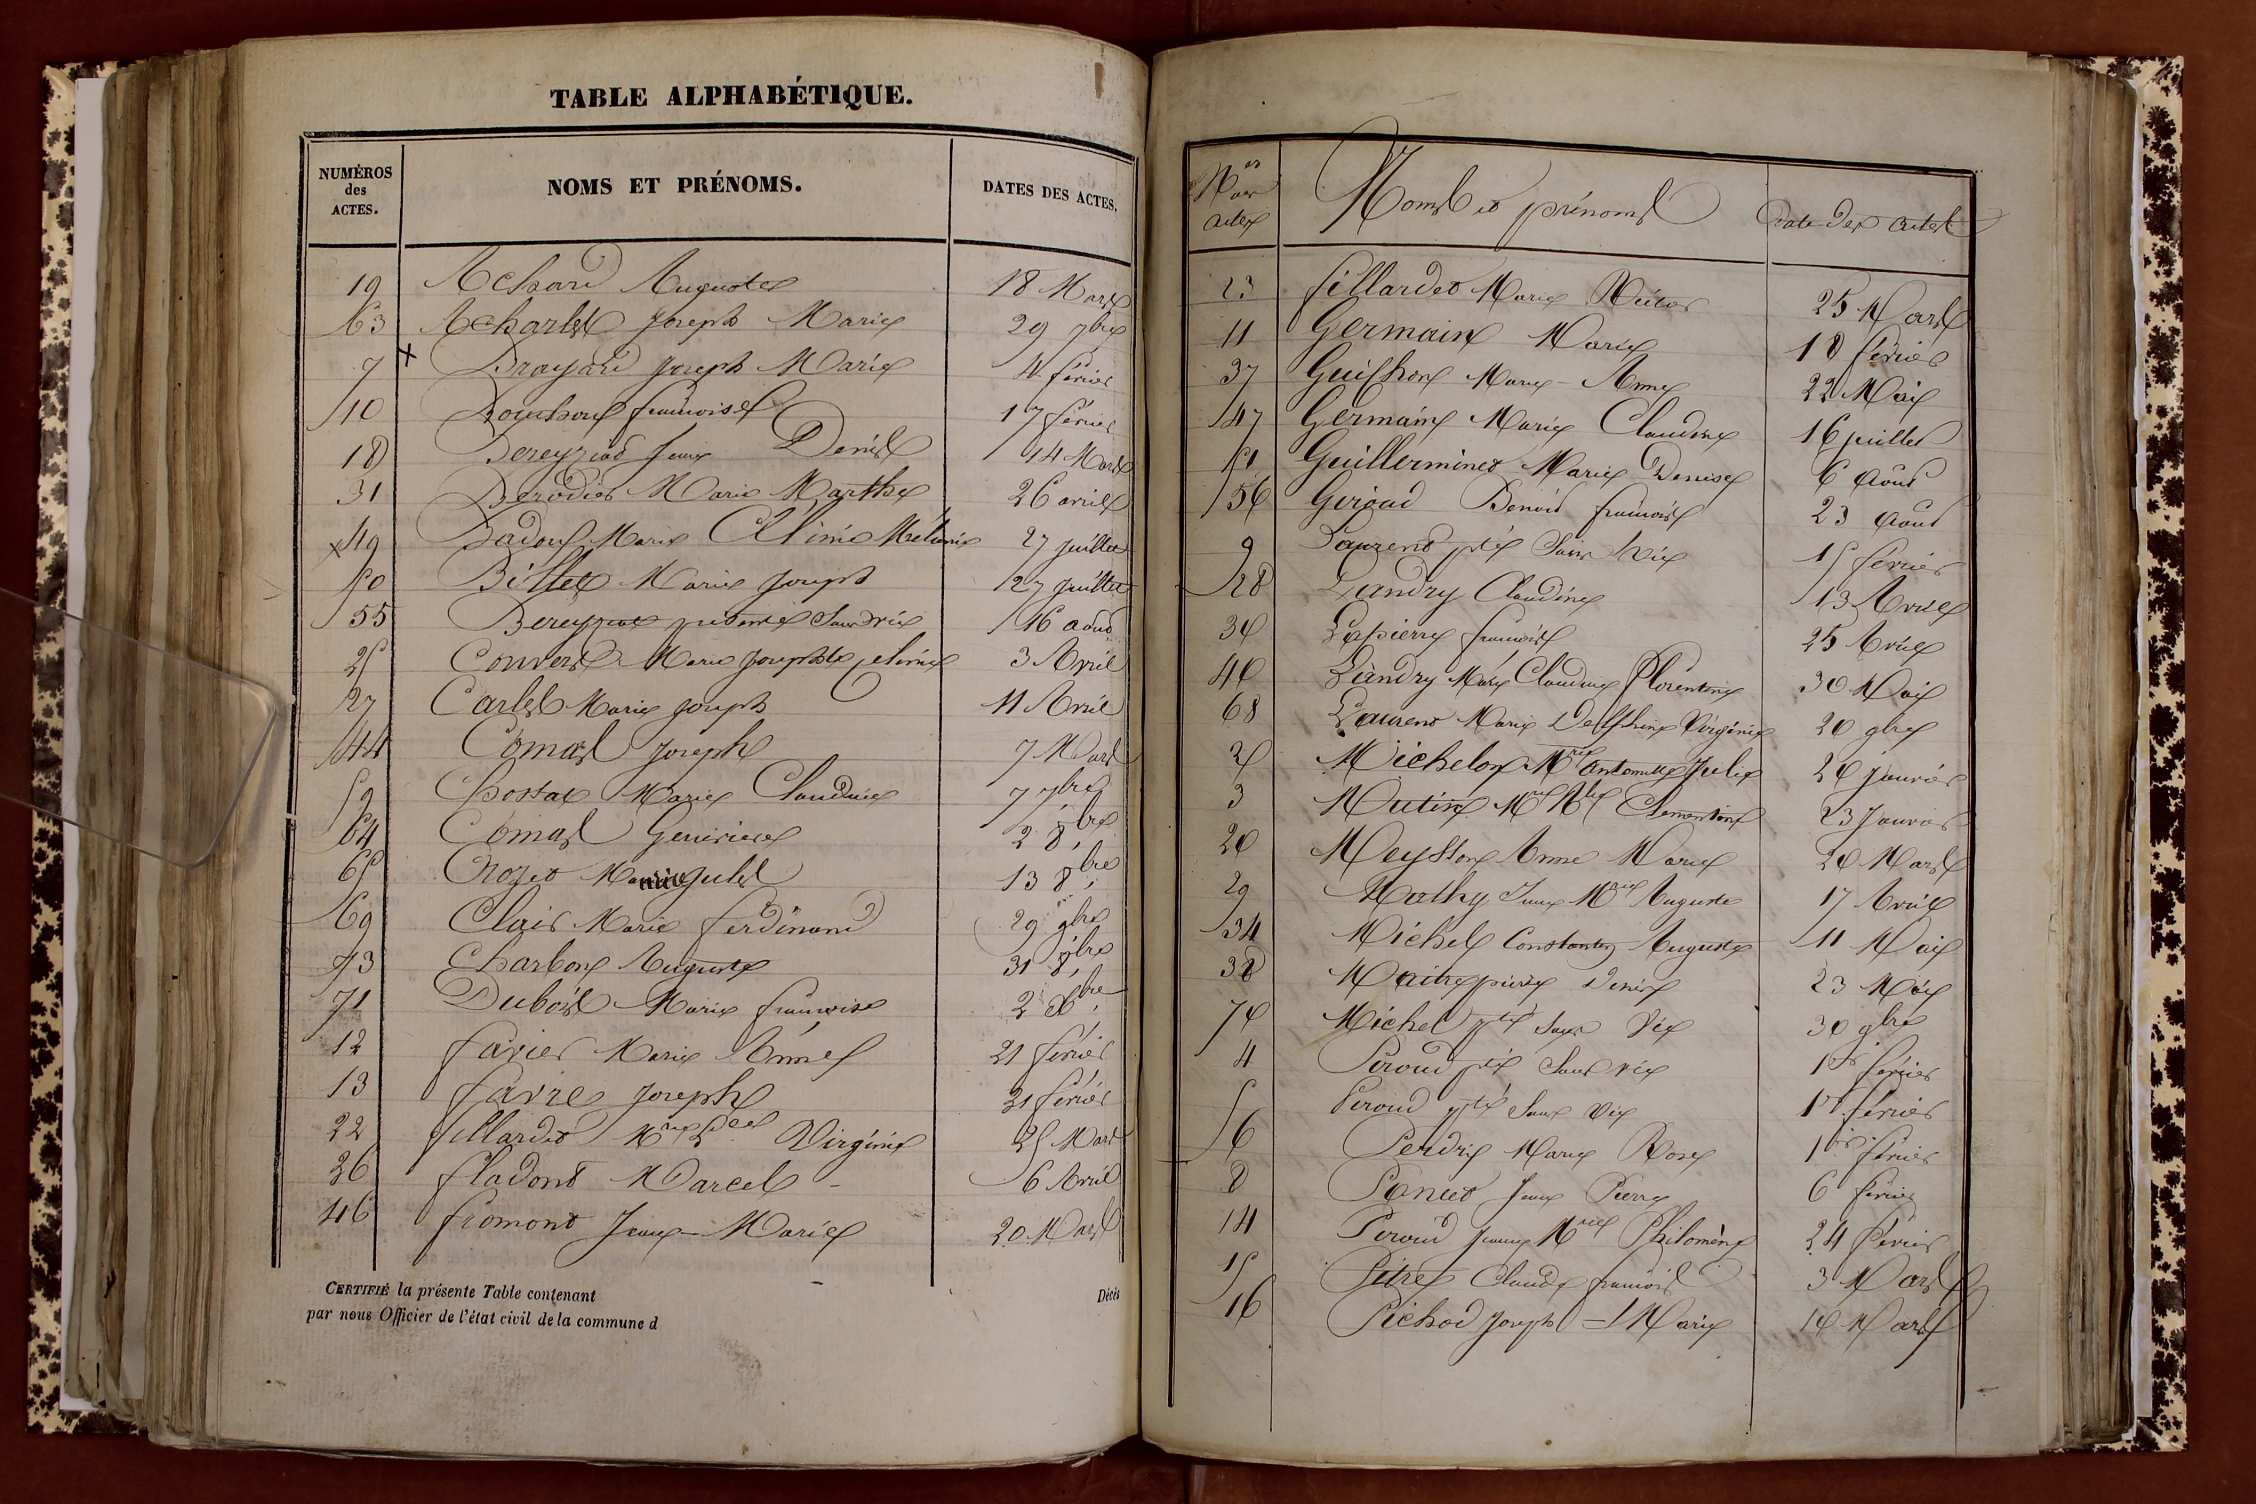 TABLE ALPHABÉTIQUE.
NUMÉROS
des
ACTES.
NOMS ET PRÉNOMS.
DATES DES ACTES.
19 Achard Auguste 18 Mars
63 Acharles Joseph Marie 29 7bre
7 Brayard Joseph Marie 4 février
10 Bouchoux françoise 17 février
18 Bereyziat Jean Denis 14 Mars
31 Berodier Marie Marthe 26 avril
49 Badoux Marie Mélanie 27 juillet
50 Billet Marie Joseph 27 juillet
55 Bereyziat présenté Sans vie 16 août
25 Convers Marie Josephte 3 Avril
27 Carlet Marie Joseph 11 Avril
44 Comas Joseph 7 Mars
59 Chossat Marie Claudine 7 7bre
64 Comas Genevieve 2 8bre
65 Crozet Jules 13 8bre
69 Clair Marie ferdinand 29 9bre
73 Charbon Auguste 31 8bre
71 Dubois Marie françoise 2 Xbre
12 favier Marie Aimé 21 février
13 favre Joseph 21 février
22 fillardet Mrie Virginie 25 Mars
26 fladont Marcel 6 Avril
46 fromont Jean-Marie 20 Mars
CERTIFIÉ la présente Table contenant
Décès
par nous Officier de l'état civil de la commune d
Nos des
actes
Noms et prénoms
Date des actes
23 fillardet Marie 25 Mars
11 Germain Marie 18 février
37 Guichon Marie-Anne 22 Mai
47 Germain Marie Claudine 16 juillet
51 Guillerminet Marie Denise 6 Août
56 Giroud Benoit françois 23 Août
9 Laurent pté Sans Vie 15 février
28 Landry Claudine 13 Avril
30 Lapierre françois 25 Avril
40 Landry Marie Claudine Florentine 30 Mai
68 Laurent Marie Delphine Virginie 20 9bre
2 Michelon Mrie Antoinette Julie 20 janvier
3 Mutin Mrie Clementine 23 Janvier
20 Meysson Anne Marie 20 Mars
29 Mathy Jean Mrie Auguste 17 Avril
34 Michel Constantin Auguste 11 Mai
38 Maitrepierre Denis 23 Mai
70 Michel pté Sans Vie 30 9bre
4 Peroud pté Sans vie 1er février
5 Peroud pté Sans Vie 1er février
6 Perdrix Marie Rose 1er février
8 Poncet Jean Pierre 6 février
14 Peroud Jeanne Mrie Philomène 24 février
15 Pitre Claude françois 3 Mars
16 Pichod Joseph-Marie 10 Mars